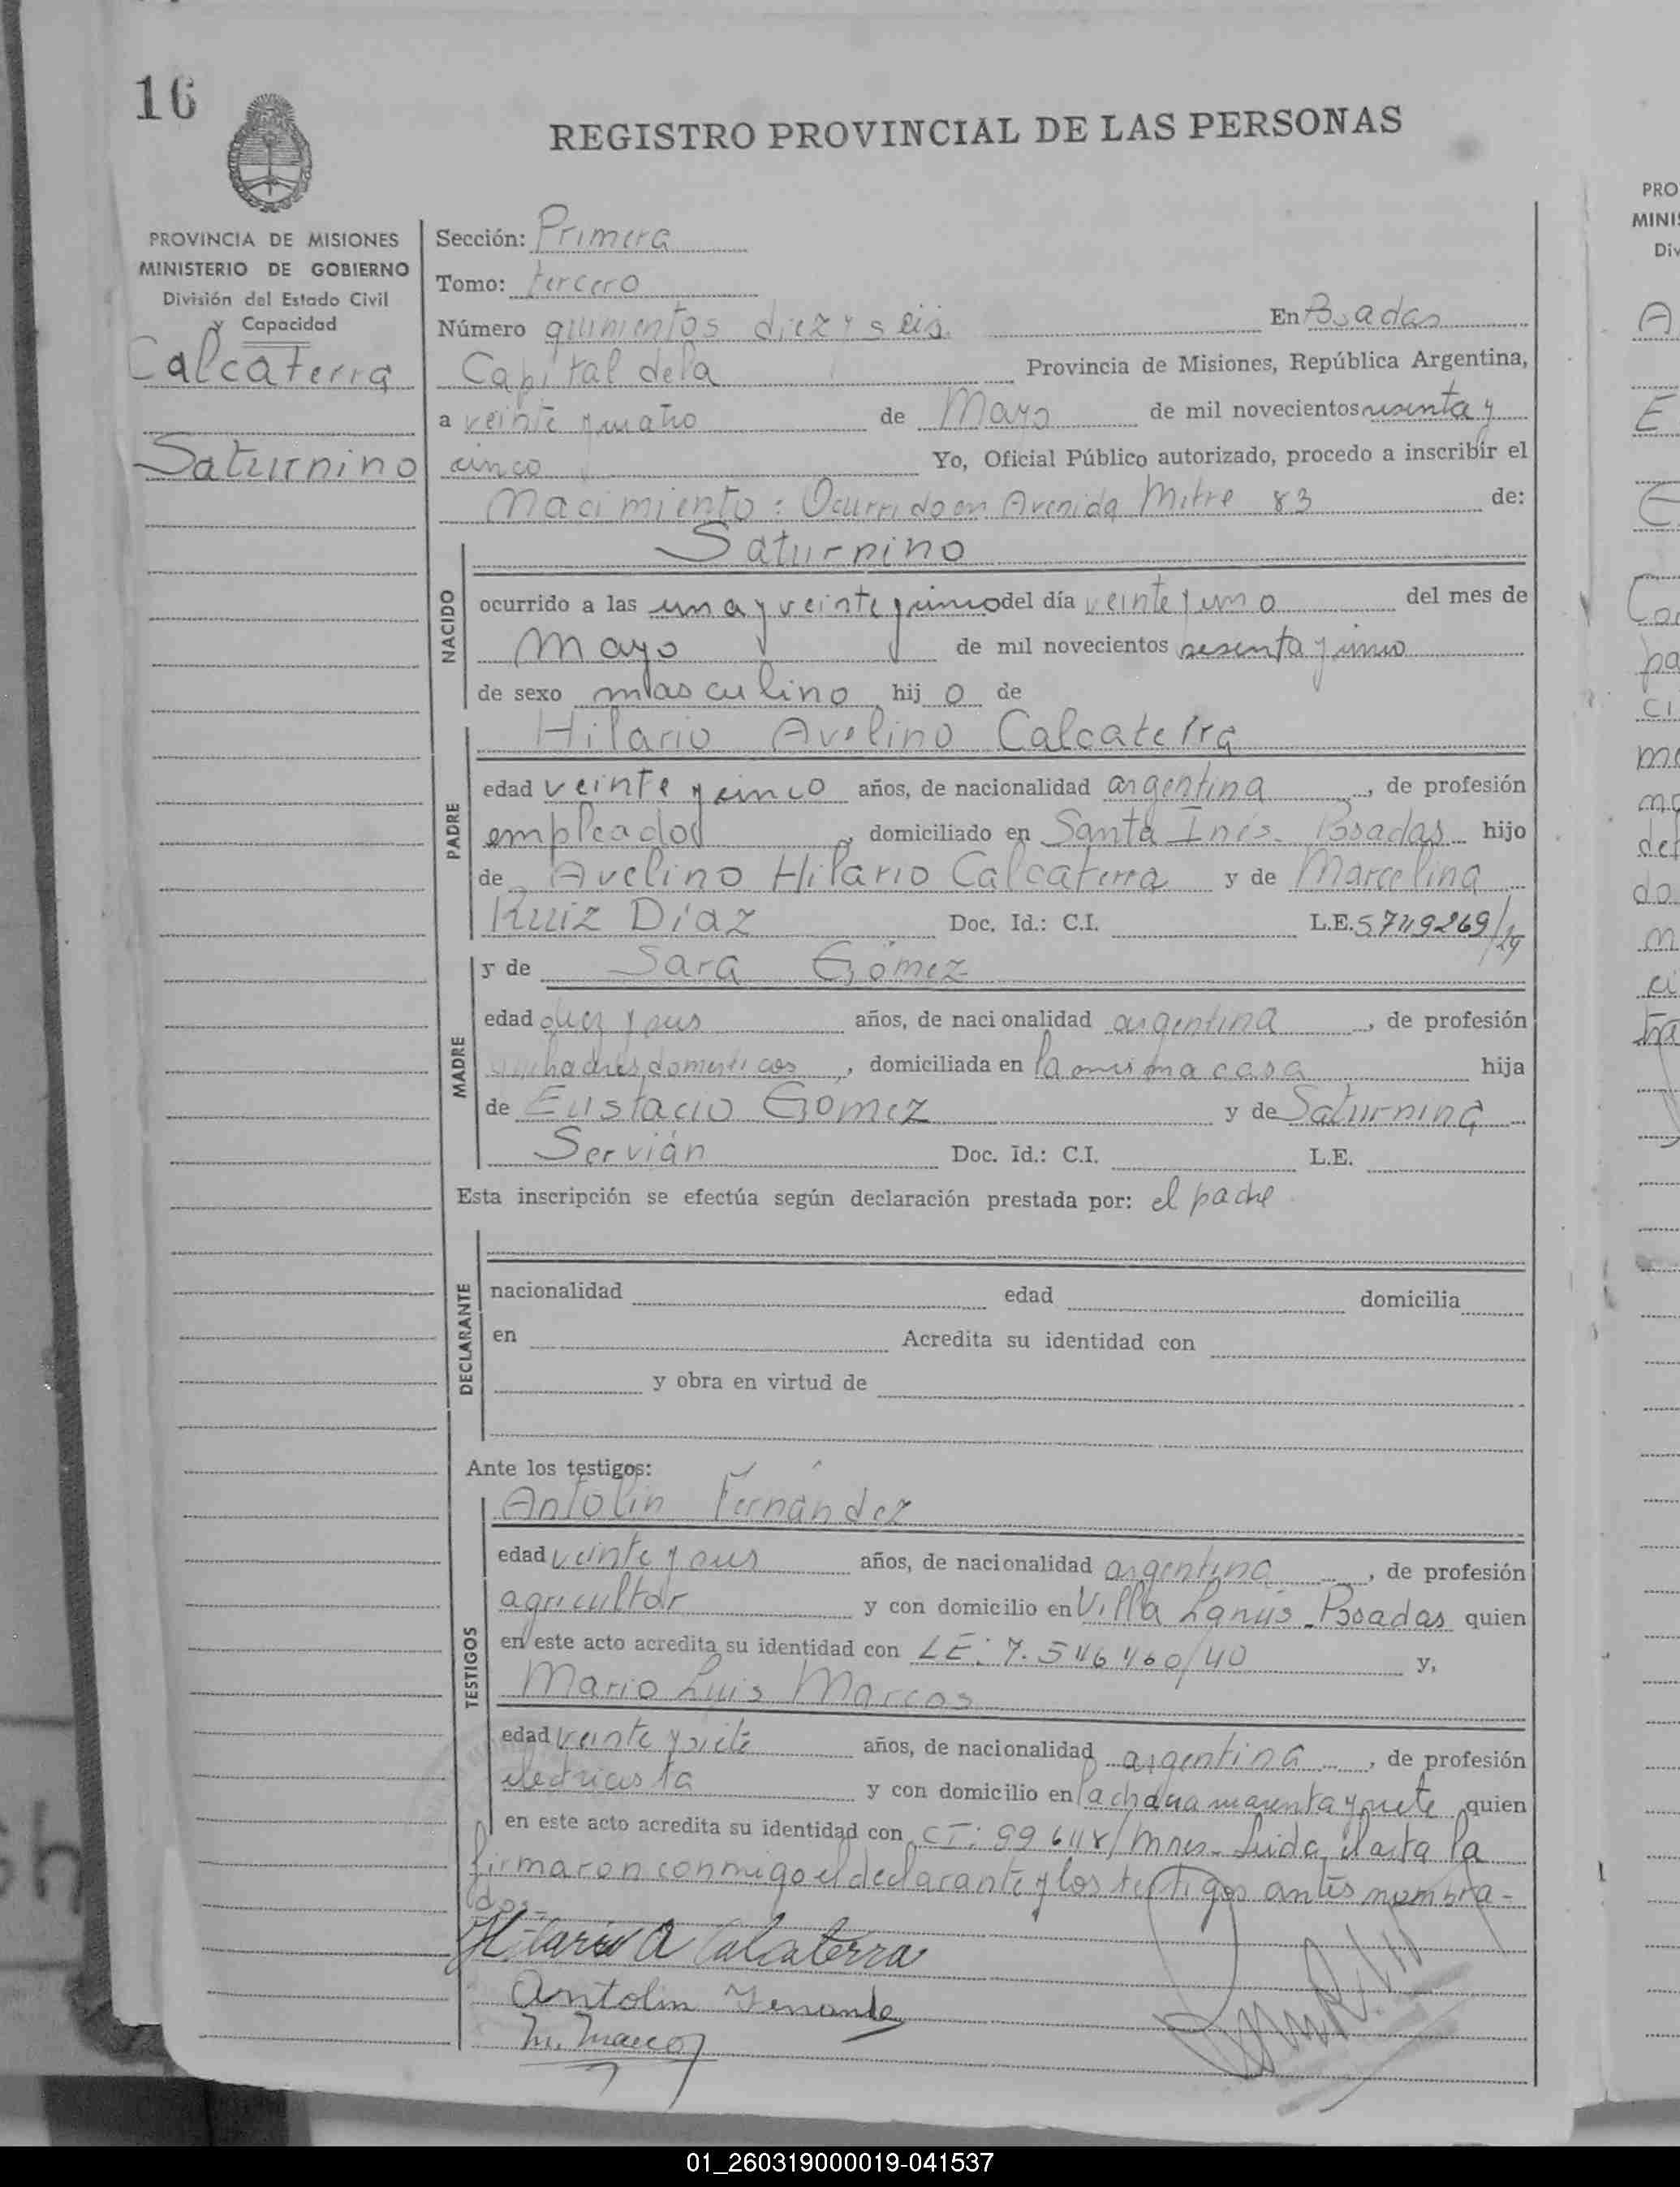 16
REGISTRO PROVINCIAL DE LAS PERSONAS
PROVINCIA DE MISIONES
MINISTERIO DE GOBIERNO
División del Estado Civil
y Capacidad
Calcaterra
Saturnino
Sección: Primera
Tomo: tercero
Número quinientos diez y seis En Posadas
Capital de la Provincia de Misiones, República Argentina,
a veinte y cuatro de Mayo de mil novecientos sesenta y
cinco Yo, Oficial Público autorizado, procedo a inscribir el
Nacimiento: Ocurrido en Avenida Mitre 83 de:
NACIDO
Saturnino
ocurrido a las una y veinte y cinco del día veinte y uno del mes de
mayo de mil novecientos sesenta y cinco
de sexo masculino hijo de
PADRE
Hilario Avelino Calcaterra
edad veinte y cinco años, de nacionalidad argentina, de profesión
empleado, domiciliado en Santa Inés - Posadas hijo
de Avelino Hilario Calcaterra y de Marcelina
Ruiz Díaz Doc. Id.: C.I. L.E.
MADRE
y de Sara Gómez
edad diez y seis años, de nacionalidad argentina, de profesión
quehaceres domesticos, domiciliada en la misma casa hija
de Eustacio Gómez y de Saturnina
Servián Doc. Id.: C.I. L.E.
Esta inscripción se efectúa según declaración prestada por: el padre
DECLARANTE
nacionalidad edad domicilia
en Acredita su identidad con
y obra en virtud de
Ante los testigos:
TESTIGOS
Antolín Fernández
edad veinte y seis años, de nacionalidad argentina, de profesión
agricultor y con domicilio en Villa Lanús - Posadas quien
en este acto acredita su identidad con LE: y,
Mario Luis Marcos
edad veinte y siete años, de nacionalidad argentina, de profesión
electricista y con domicilio en la chacra cuarenta y siete quien
en este acto acredita su identidad con CI: Mnes - Leída el acta la
firmaron conmigo el declarante y los testigos antes nombra-
dos -
Hilario A Calcaterra
Antolin Fernande
M. Marcos
PRO
MINIS
Div
01_260319000019-041537